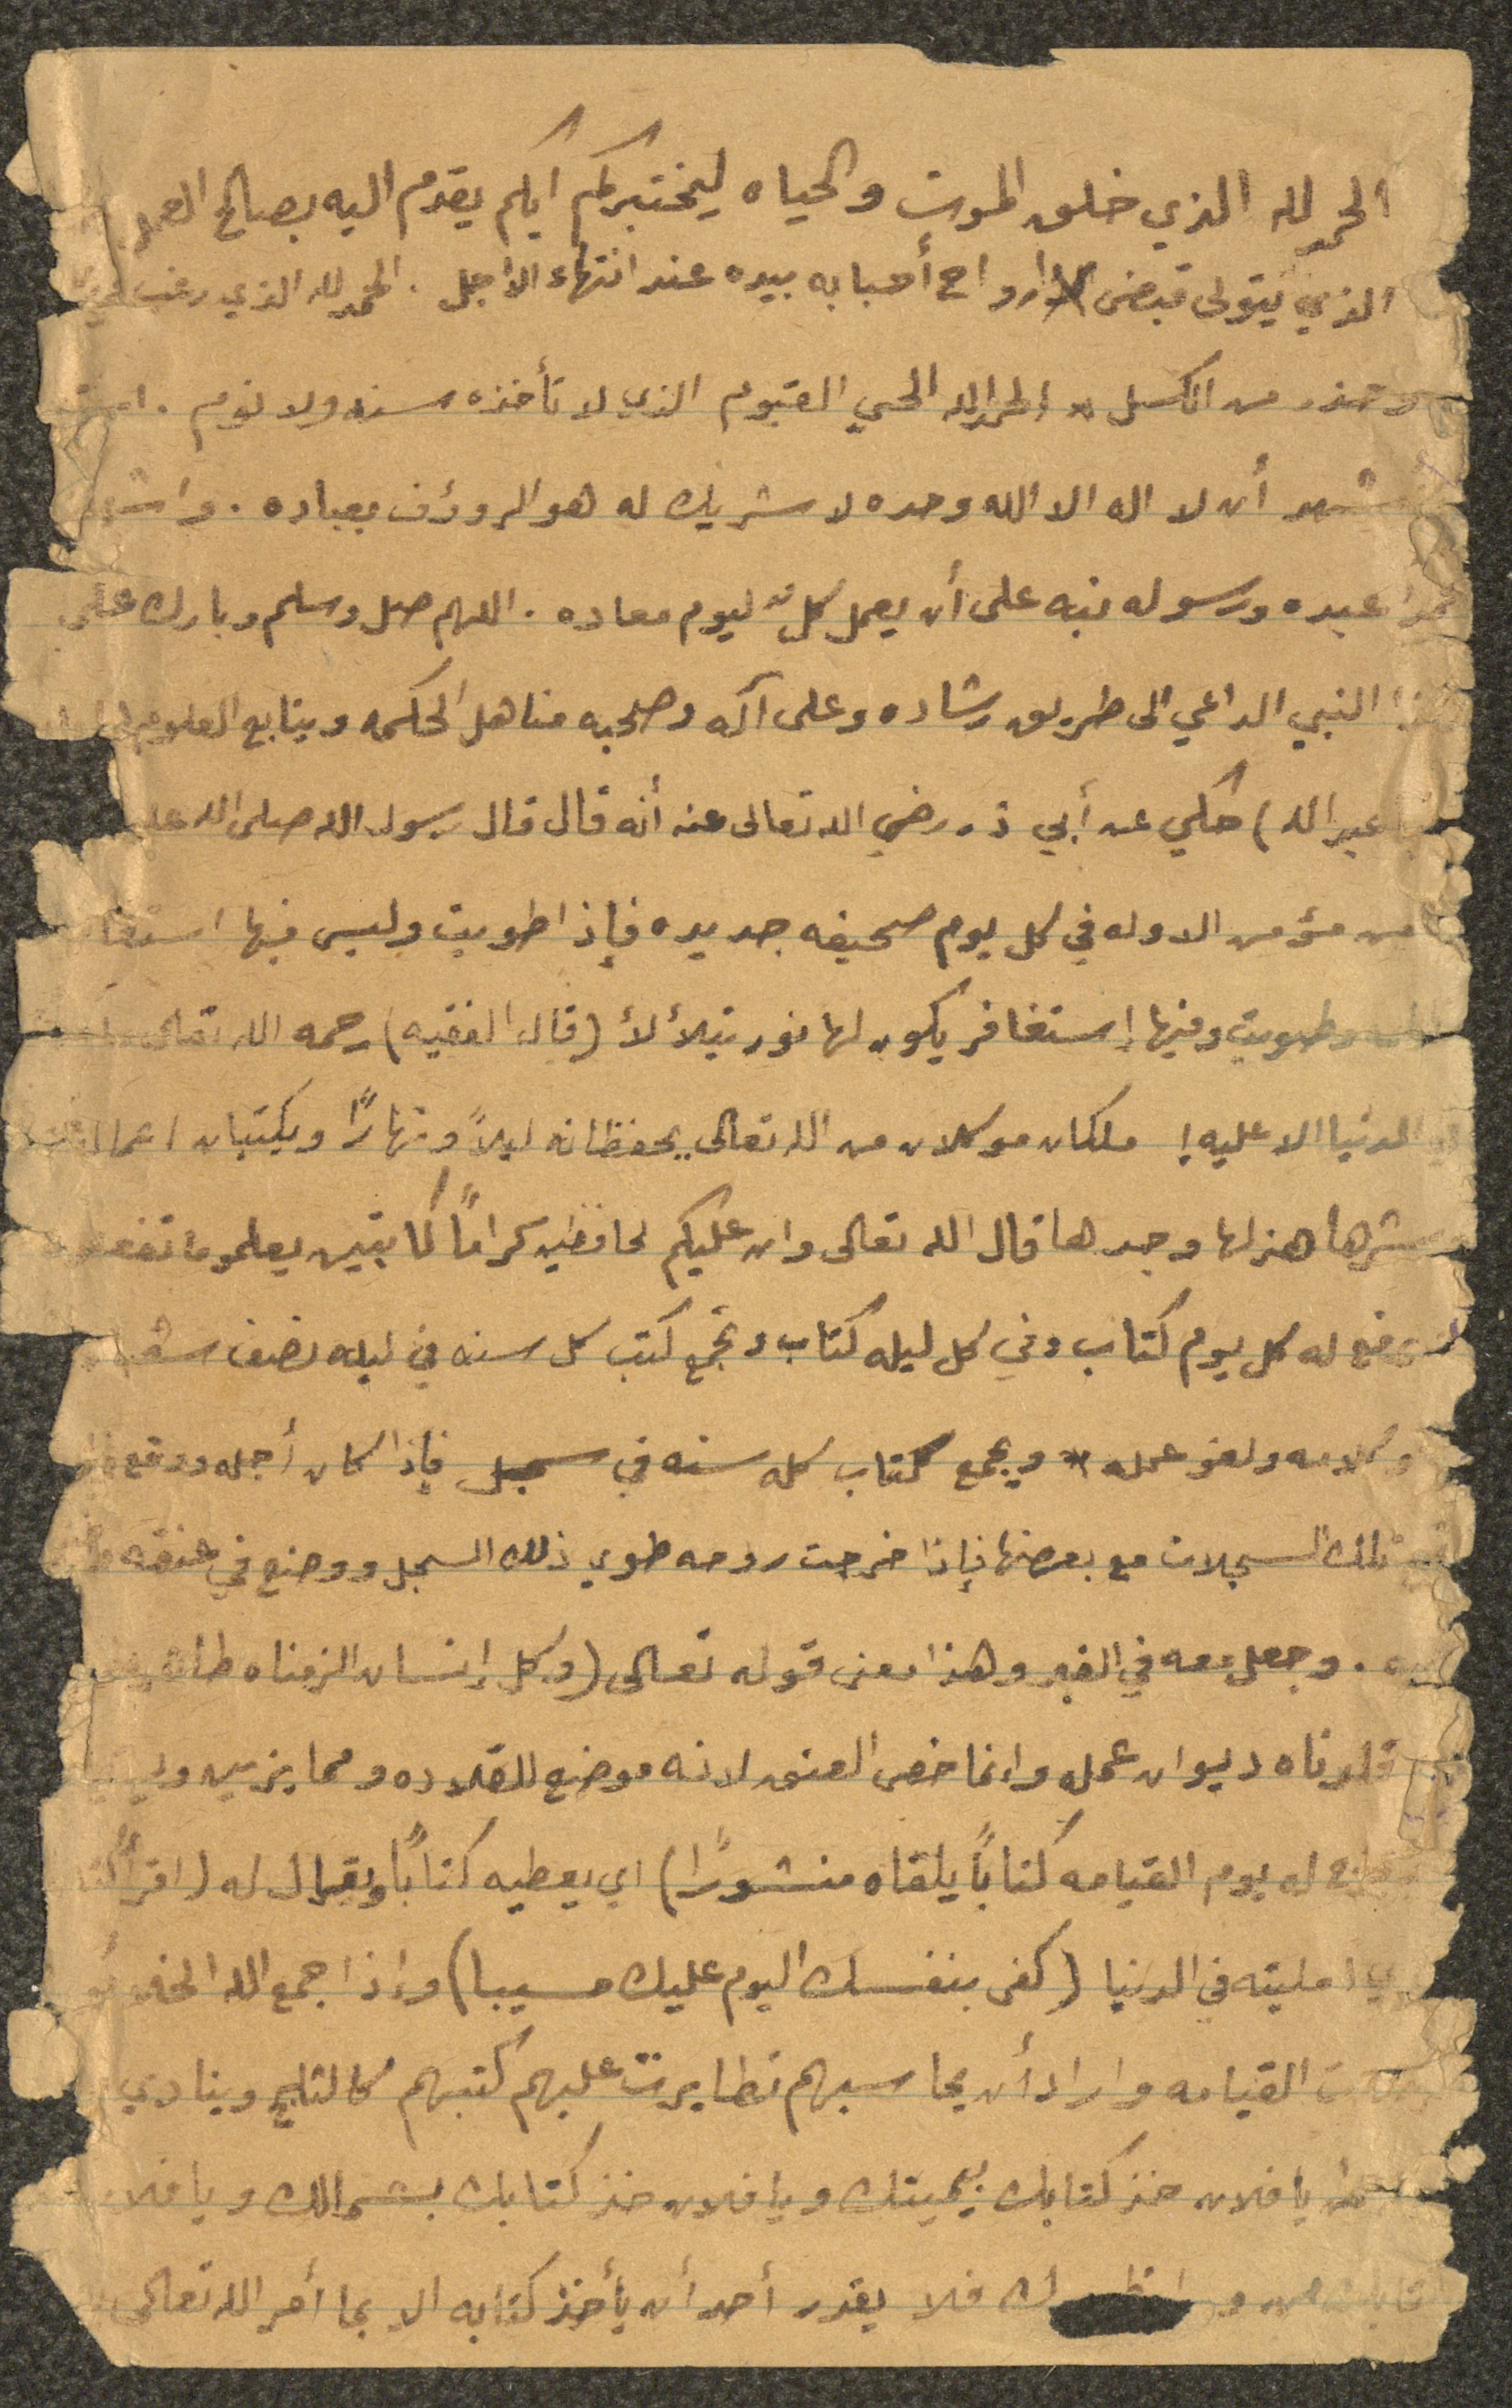 الحمد لله الذي خلق الموت والحياه ليختبركم ايكم يقدم اليه بصالح العمل
الذي يتولى قبض ارواح أحبابه بيده عند انتهاء الاجل . الحمد لله الذي رغب
وحذر من الكسل * الحمد لله الحي القيوم الذي لا تأخذه سنه ولا نوم .
أشهد أن لا اله الا الله وحده لا شريك له هو الرؤوف بعباده . واشهد
محمدا عبده ورسوله نبه على أن يعمل كل منا ليوم معاده . اللهم صل وسلم وبارك على
هذا النبي الداعي الى طريق رشاده وعلى آله وصحبه مناهل الحكمه وينابع العلوم
عبد الله) حكي عن أبي ذر رضي الله تعالى عنه أنه قال قال رسول الله صلى الله عليه
من مؤمن الا وله في كل يوم صحيفه جديده فإذا طويت وليس فيها استغفار
وطويت وفيها إستغافر يكون لها نور يتلألأ (قال الفقيه) رحمه الله تعالى
في الدنيا الا عليه ! ملكان موكلان من الله تعالى يحفظانه ليلاً ونهارًا ويكتبان اعماله
شرها هزلها وجدها قال الله تعالى وان عليكم لحافظين كراماً كاتبين يعلمو ما تفعلون
يرفع له كل يوم كتاب وفي كل ليله كتاب وتجمع كتب كل سنه في ليله نصف شعبان
كلامه ولغو عمله * ويجمع كتاب كله سنه في سجل فإذا كان أجله ووقع
تلك السجلات مع بعضها فإذا خرجت روحه طوي ذلك السجل ووضع في عنقه
. وجعل معه في القبر وهذا معنى قوله تعالى (وكل إنسان الزمناه طائره
قلدناه ديوان عمله وانما خص العنق لانه موضع للقلاده ومما يزين
ونخرج له يوم القيامه كتاباً يلقاه منشورًا) اي يعطيه كتاباً ويقال له (اقرأ
امليته في الدنيا (كفى بنفسك اليوم عليك حسيبا) واذا جمع الله الخلائق
القيامه واراد أن يحاسبهم تطايرت عليهم كتبهم كالثلج وينادي
يا فلان خذ كتابك بيمينك ويا فلان خذ كتابك بشمالك ويا فلان
كتابك من وراء ظهرك فلا يقدر أحد أن يأخذ كتابه الا بما أمر الله تعالى